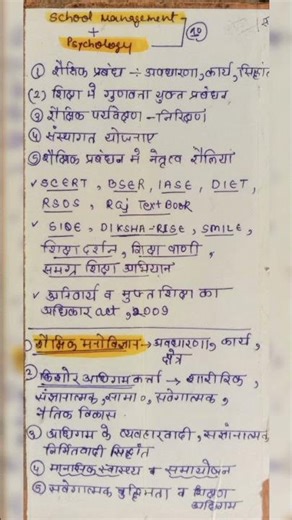 School management
+
Psychology
① शैक्षिक प्रबंध ÷ अवधारणा, कार्य, सिद्धांत
(2) शिक्षा में गुणवत्ता युक्त प्रबंधन
③ शैक्षिक पर्यवेक्षण - निरीक्षण
④ संस्थागत योजनाए
⑤ शैक्षिक प्रबंधन में नेतृत्व शैलियां
✓ SCERT, BSER, IASE, DIET,
RSOS, Raj Text Book
✓ SIQE, DIKSHA-RISE, SMILE,
शिक्षा दर्शन, शिक्षा वाणी,
समग्र शिक्षा अभियान
✓ अनिवार्य व मुफ्त शिक्षा का
अधिकार act, 2009
① शैक्षिक मनोविज्ञान → अवधारणा, कार्य,
क्षेत्र
② किशोर अधिगमकर्त्ता → शारीरिक,
संज्ञानात्मक, सामा०, संवेगात्मक,
नैतिक विकास
③ अधिगम के व्यवहारवादी, संज्ञानात्मक
निर्मितवादी सिद्धांत
④ मानसिक स्वास्थ्य व समायोजन
⑤ संवेगात्मक बुद्धिमता व शिक्षण
अधिगम